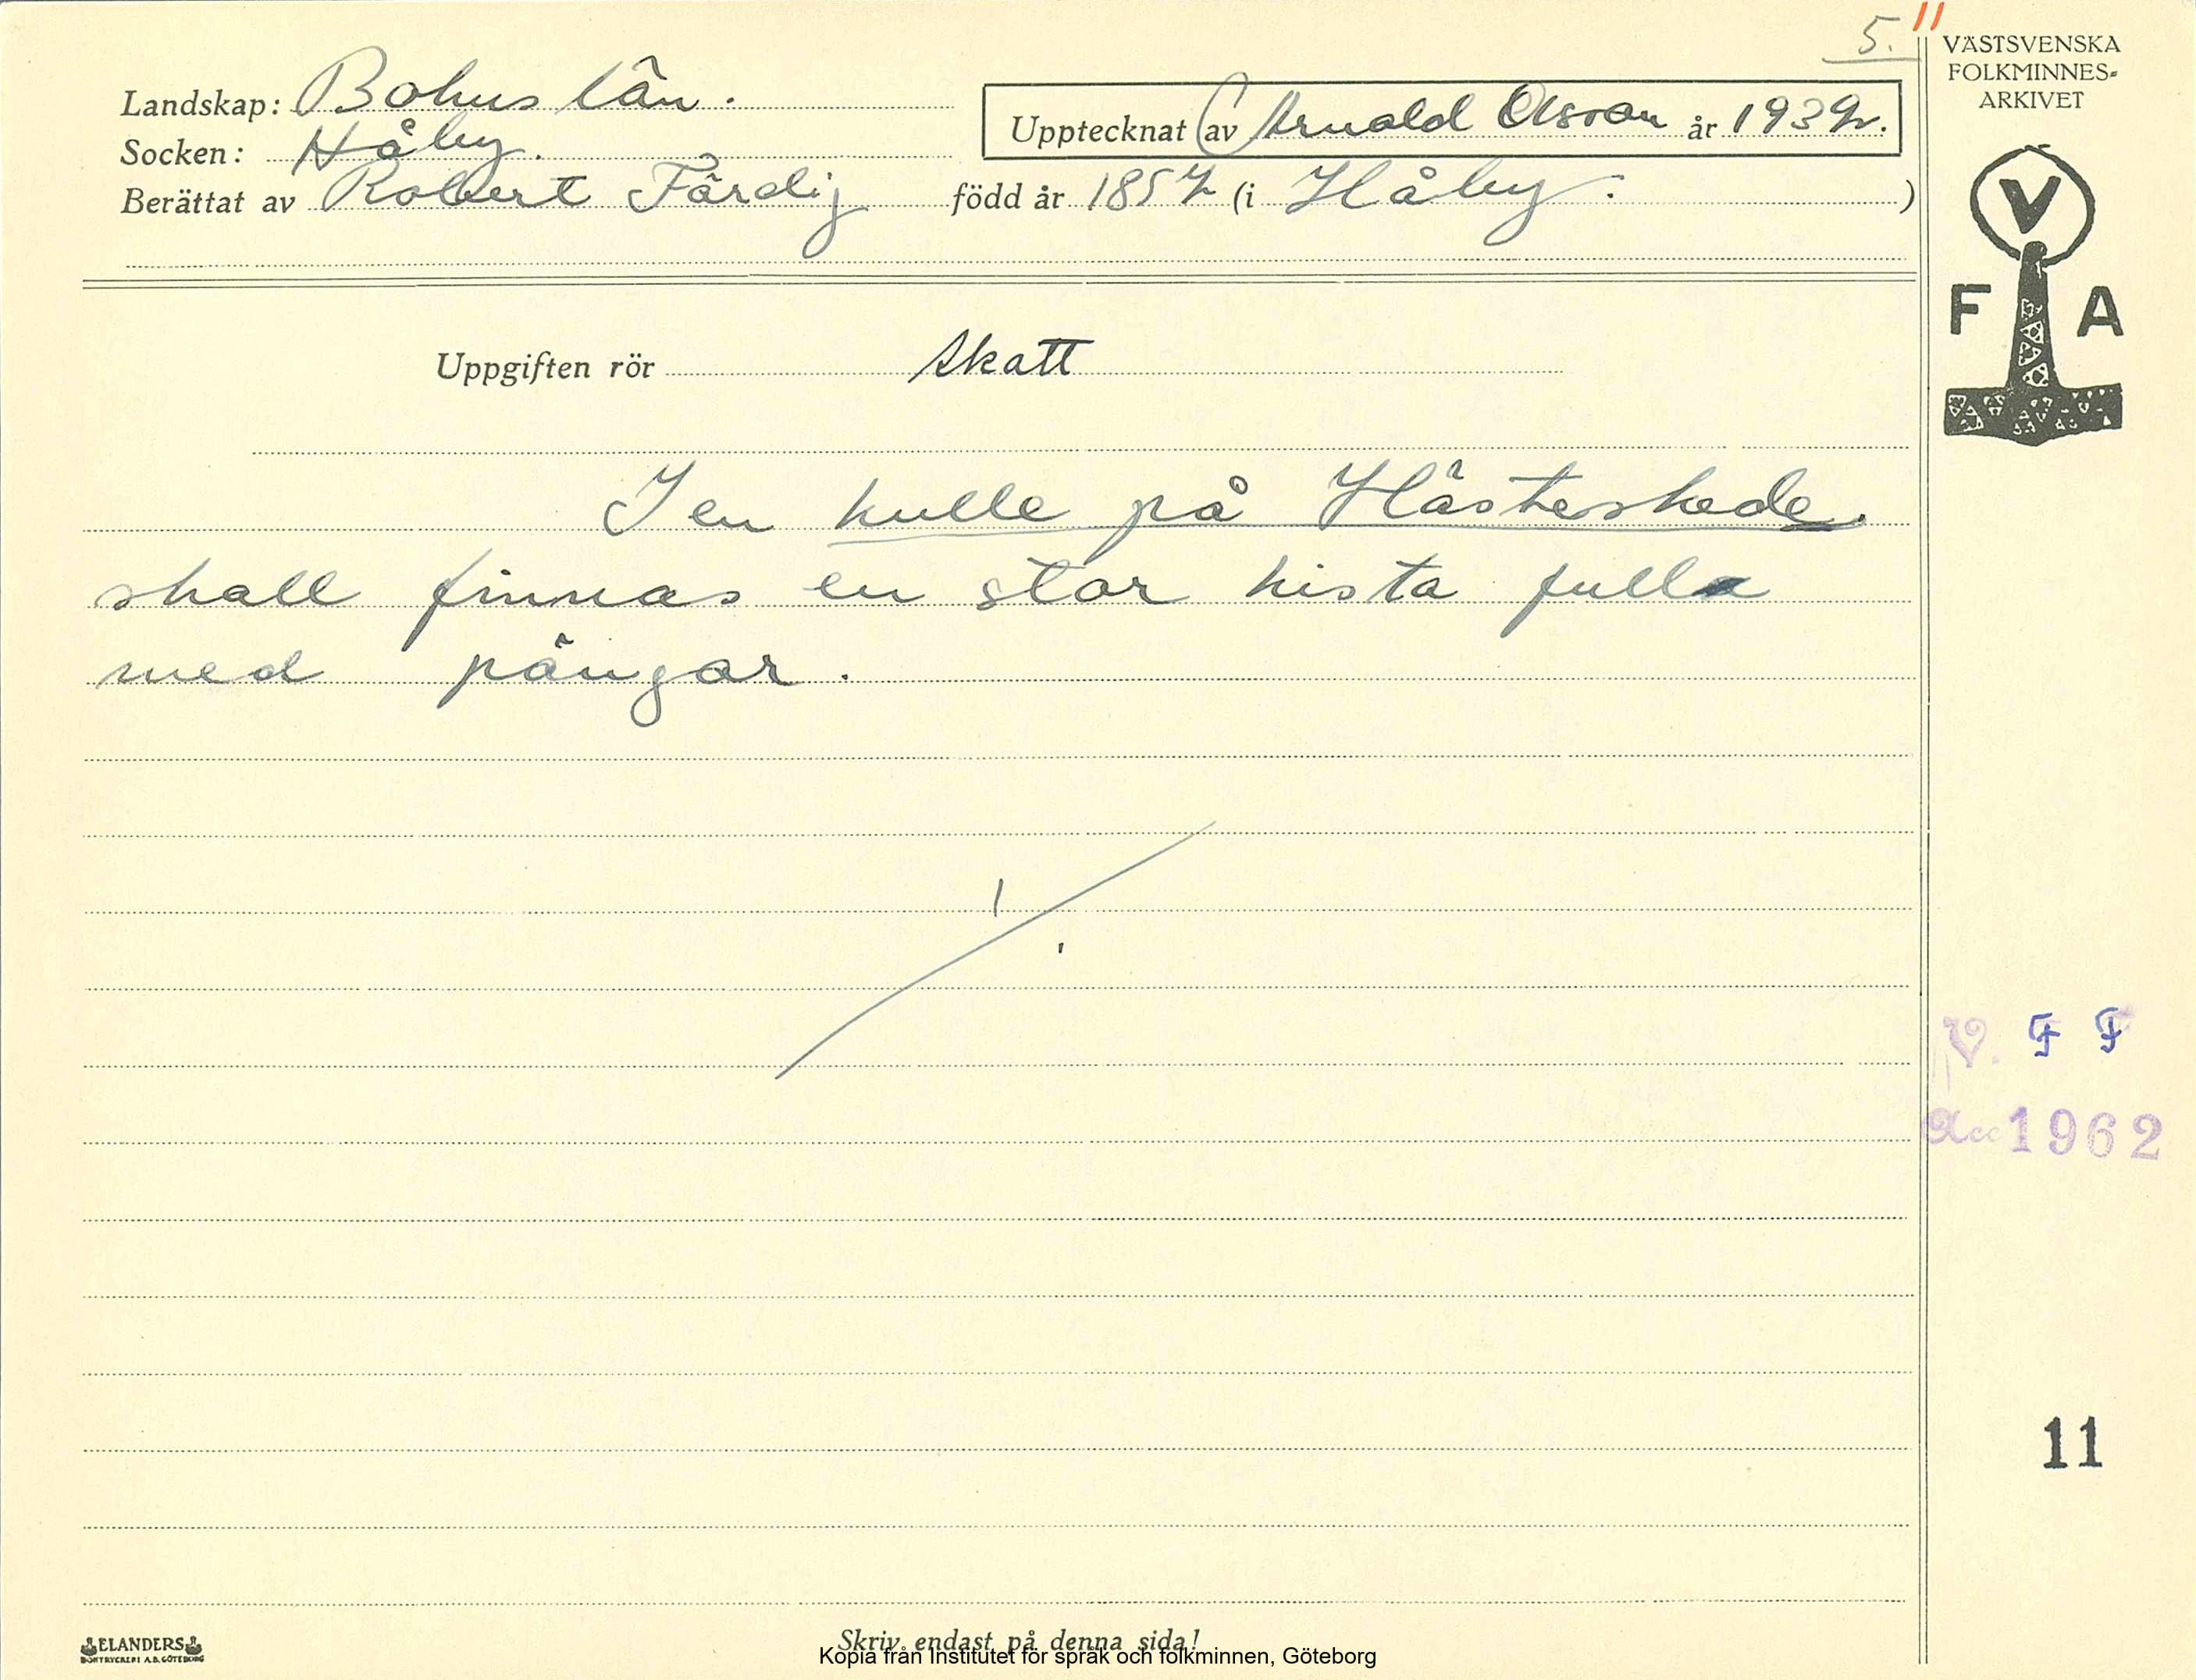 5. 11
VÄSTSVENSKA
FOLKMINNES-
ARKIVET
Landskap: Bohus län.
Upptecknat av Arnold Olsson år 1939.
Socken: Håby.
Berättat av Robert Färdig född år 1857 (i Håby. )
V
F A
Uppgiften rör skatt
I en kulle på Hästeskede
skall finnas en stor kista fulla
med pängar.
V. F F
Acc 1962
11
ELANDERS
BOKTRYCKERI A.B. GÖTEBORG
Skriv endast på denna sida!
Kopia från Institutet för språk och folkminnen, Göteborg